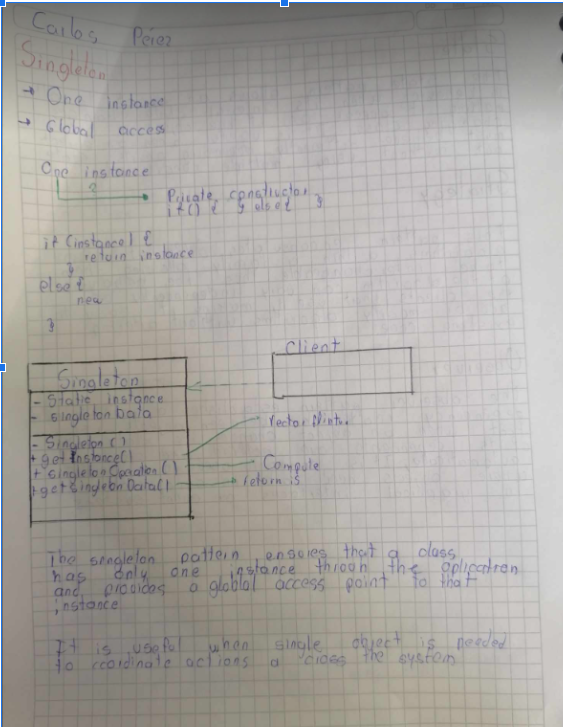 Carlos Perez
Singleton
→ One instance
→ Global access
One instance
?
Private constructor
if () { } else { }
if (instance) {
retain instance
}
else {
new
}
Client
Singleton
- Static instance
- singleton Data
- Singleton ()
+ get Instance()
+ singleton Operator ()
+ get Singleton Data()
Vector
Compute
return is
The sengleton pattern ensores that a class
has only one instance throoh the aplication
and provides a global access point to that
instance
It is useful when single object is needed
to coordinate actions a cross the system